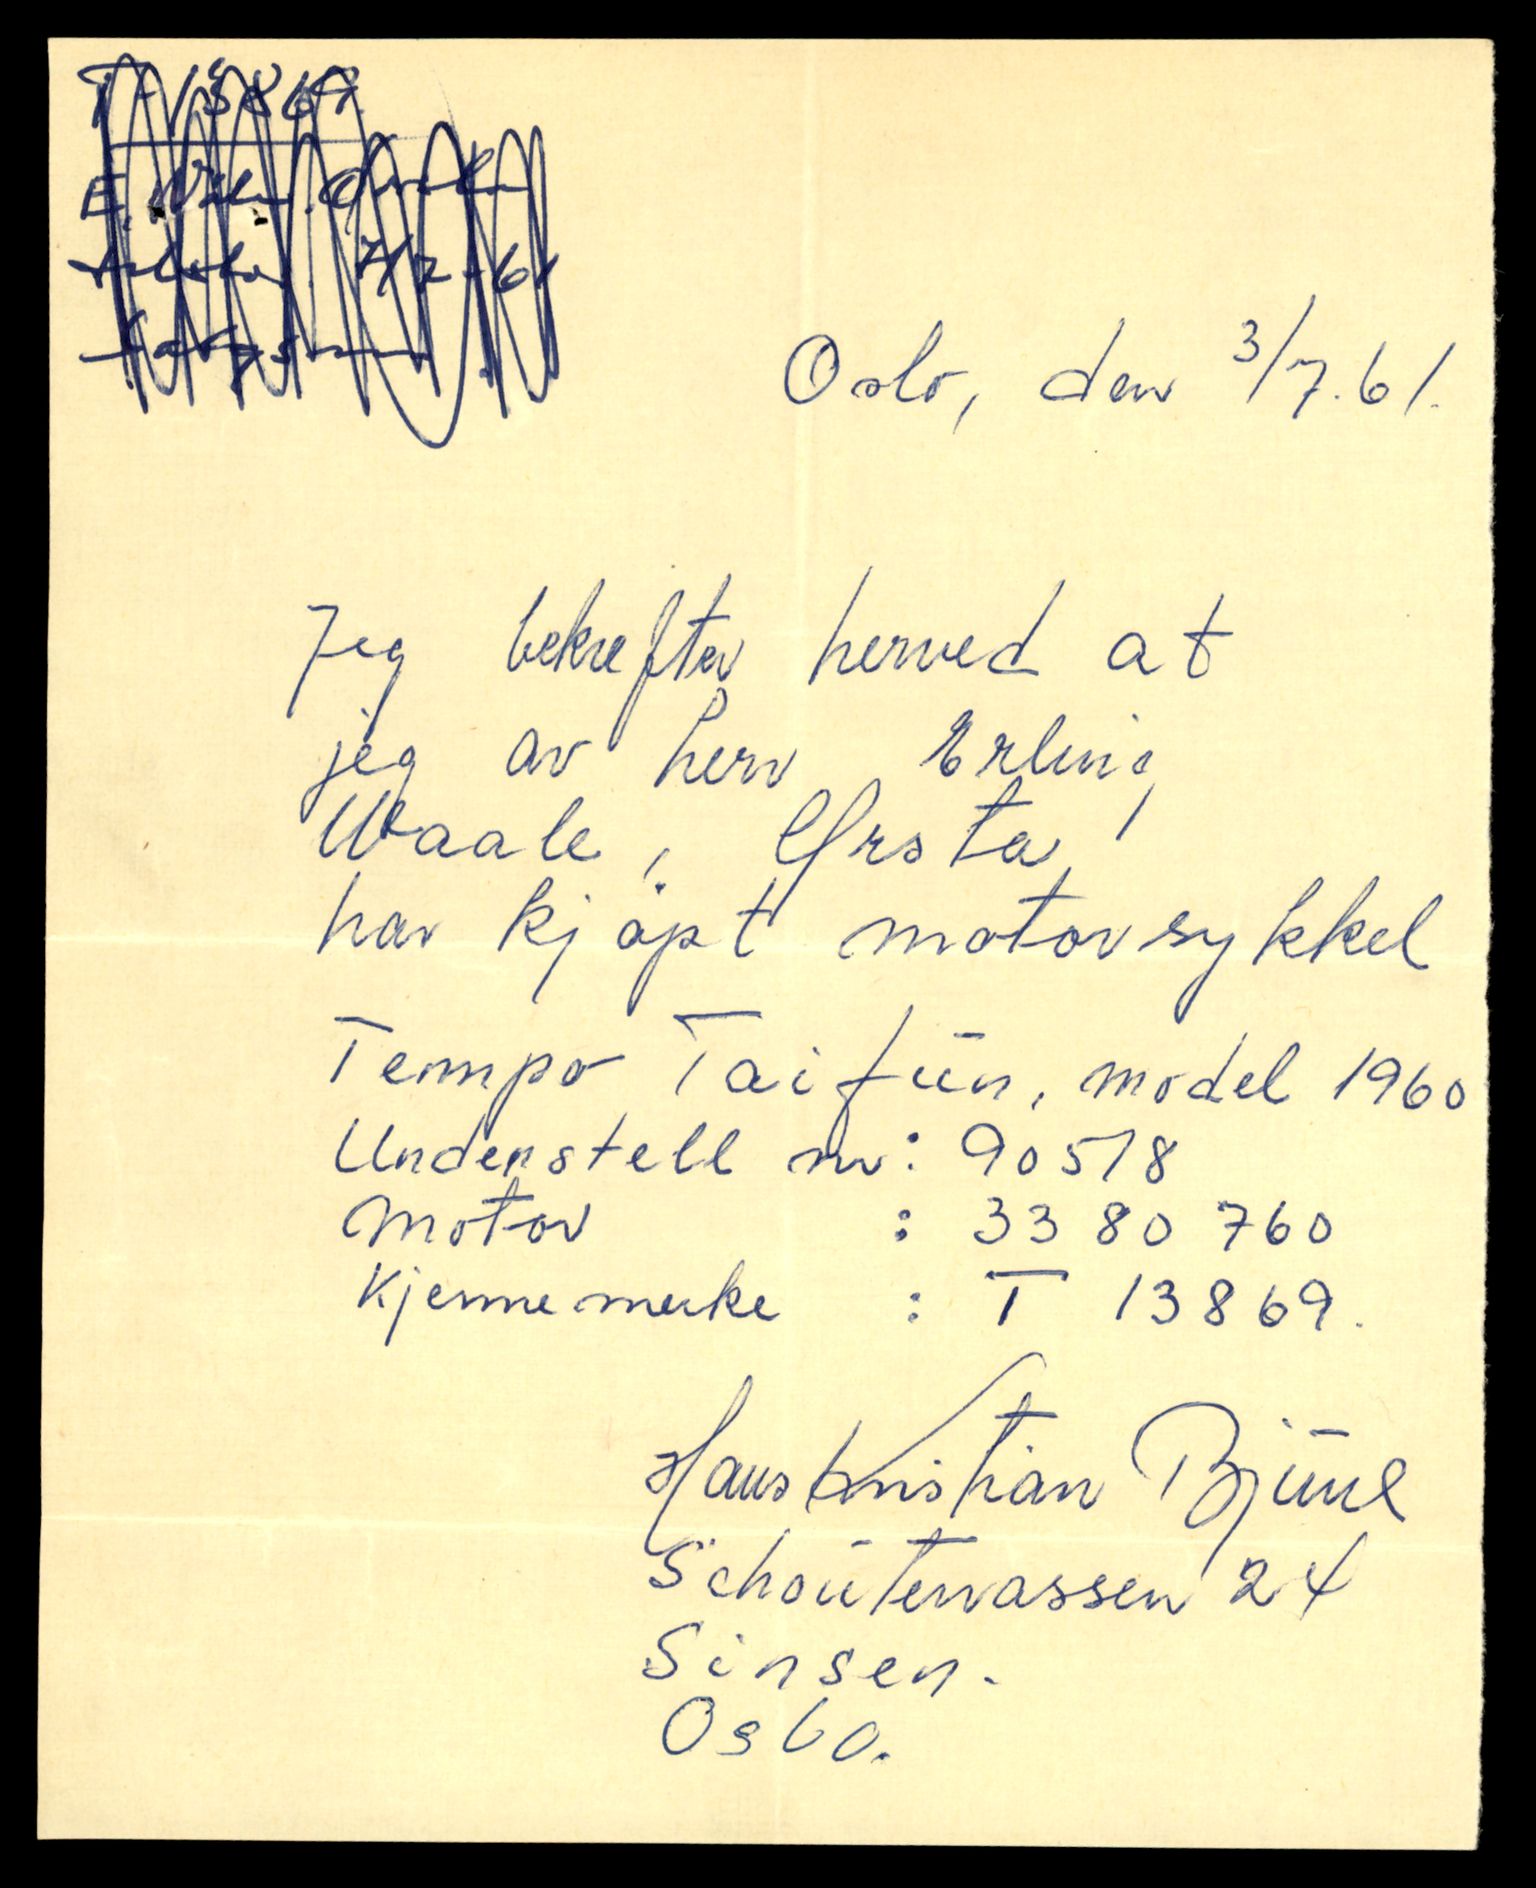 T 13869
Oslo, den 3/7.61.
Jeg bekrefter herved at
jeg av herr Erling
Waale, Ørsta,
har kjøpt motorsykkel
Tempo Taifun, model 1960
Understell nr: 90518
Motor : 3380760
Kjennemerke : T 13869.
Hans Kristian Bjune
Schouterrassen 24
Sinsen.
Oslo.